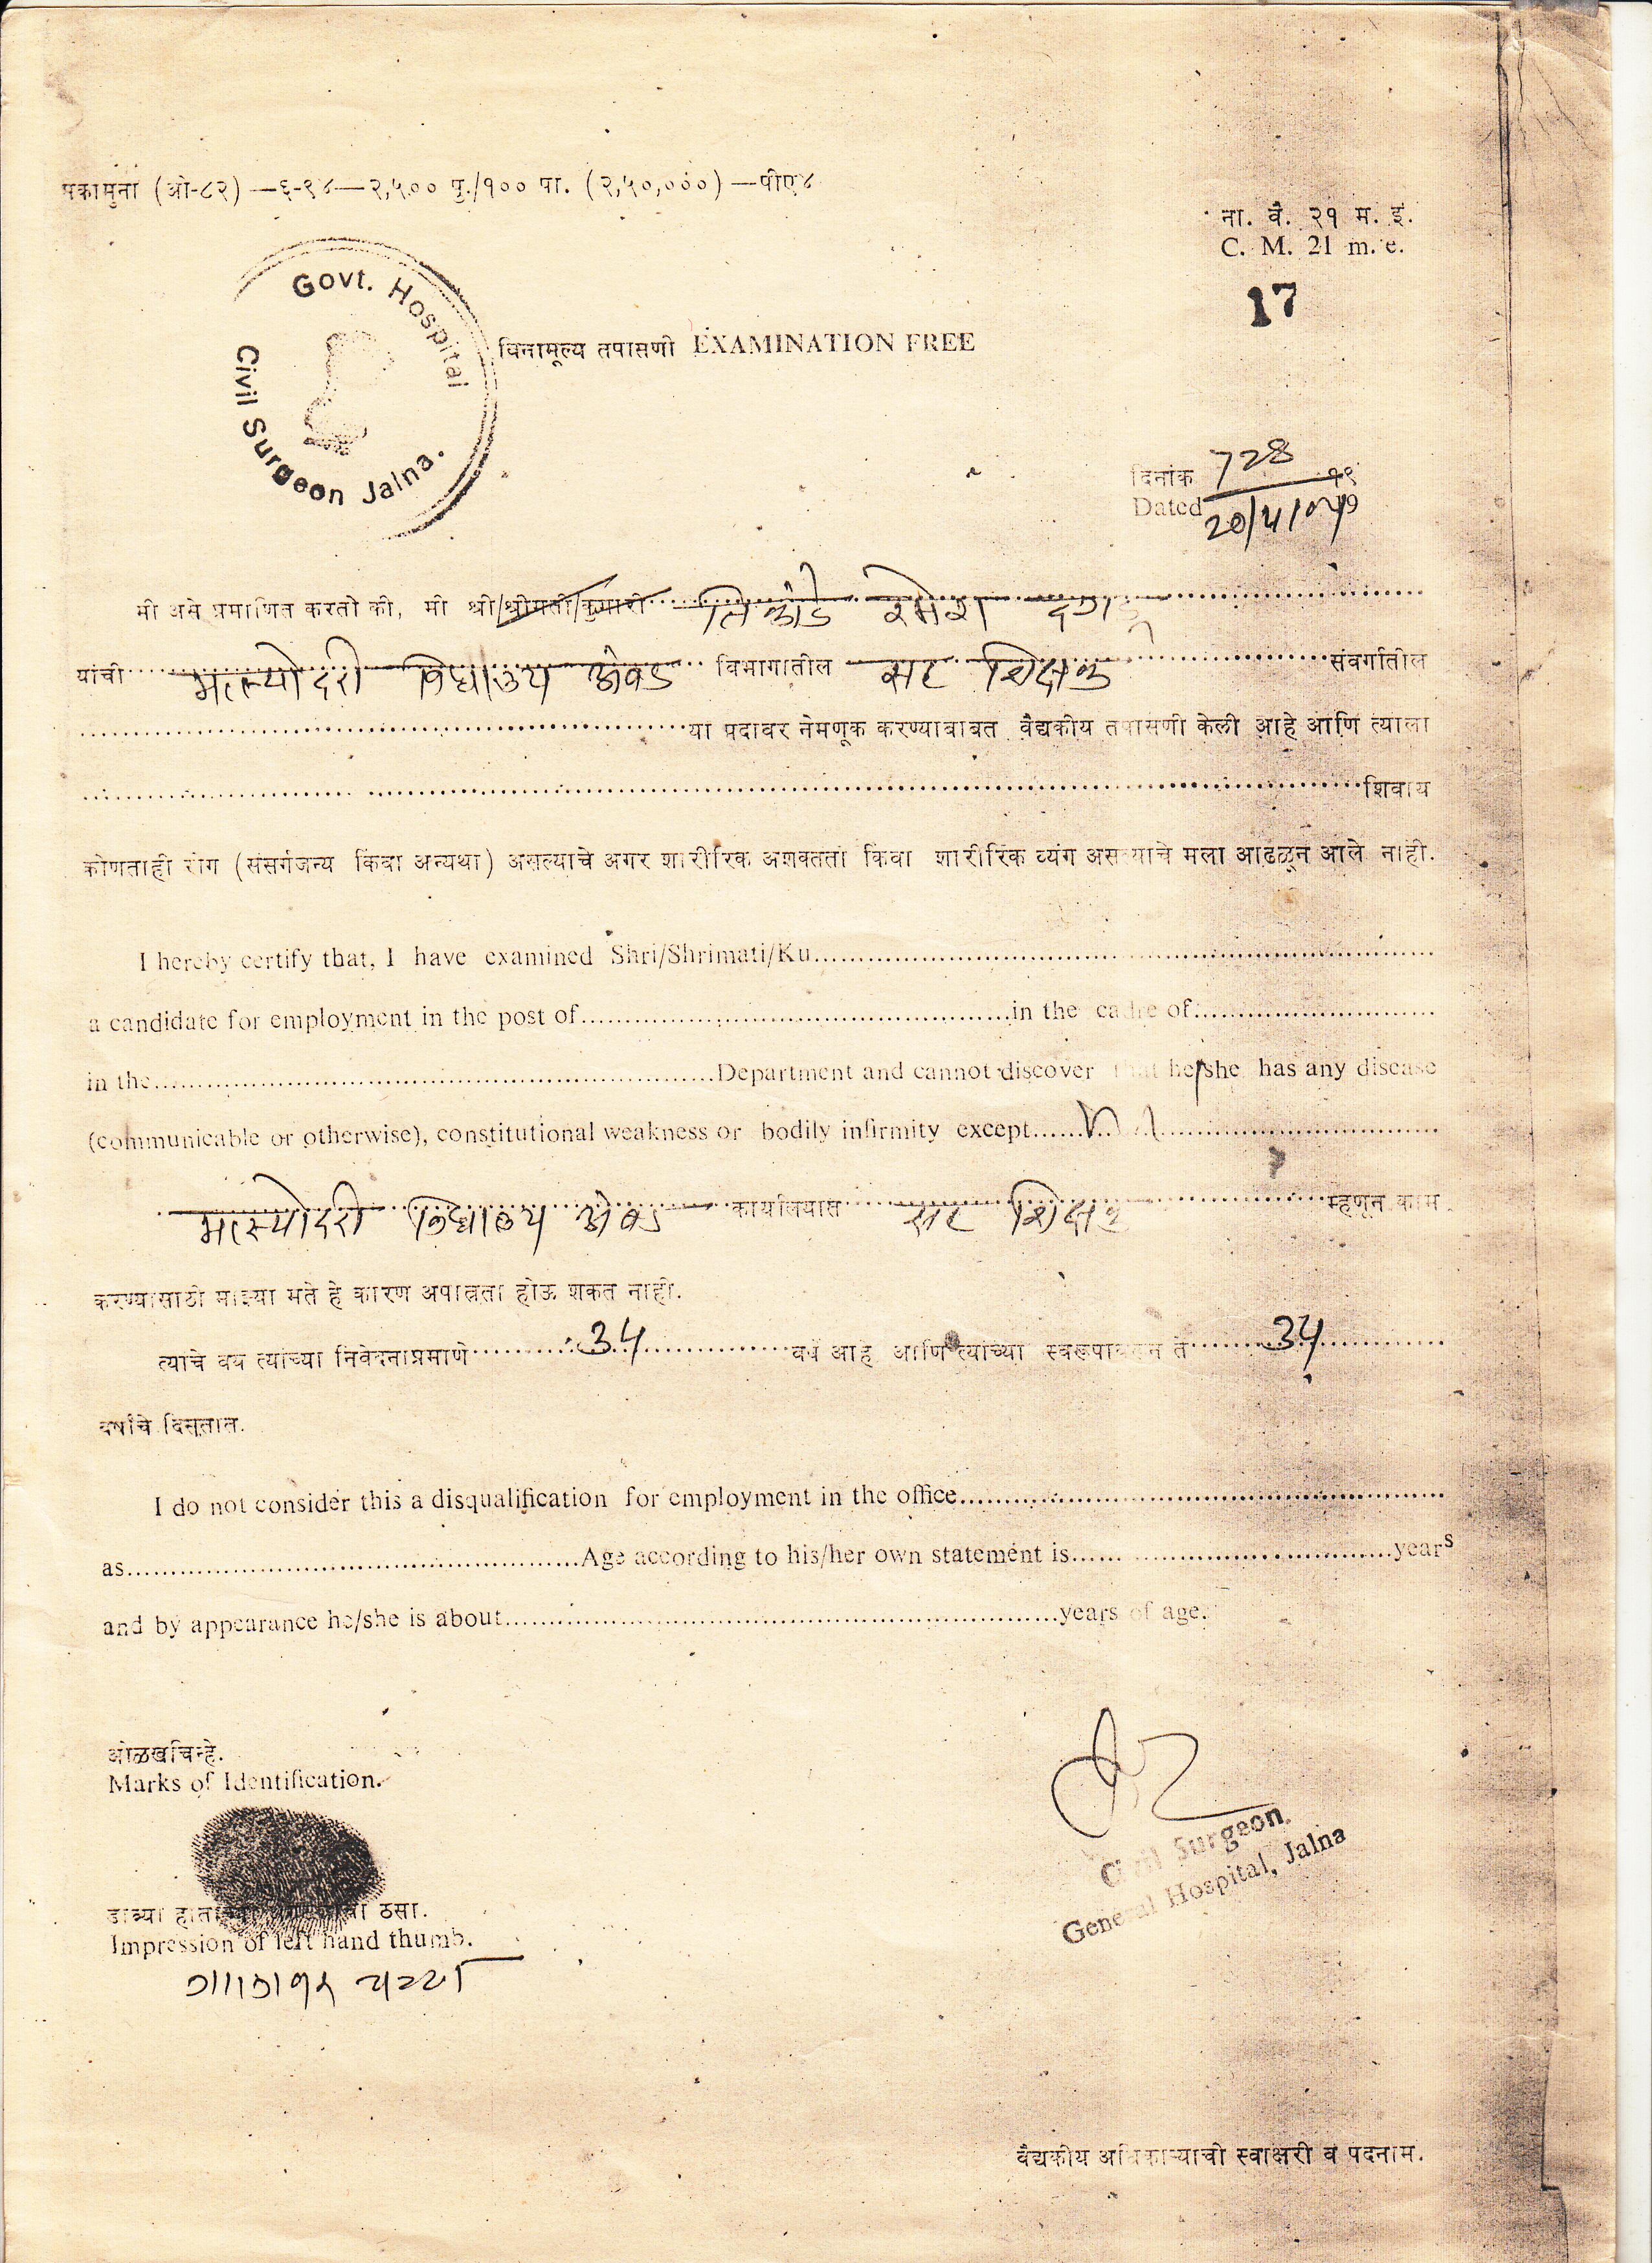 पकामुना (ओ-८२) —६-९४—२,५०० पु./१०० पा. (२,५०,०००) —पीए४
ना. वै. २१ म. इ.
C. M. 21 m. e.
17
Govt. Hospital
Civil Surgeon Jalna.
विनामूल्य तपासणी EXAMINATION FREE
दिनांक 728 १९
Dated
मी असे प्रमाणित करतो की, मी श्री/श्रीमती/कुमारी रमेश
यांची मत्स्योदरी विद्यालय अंबड विभागातील सह शिक्षक संवर्गातील
या पदावर नेमणूक करण्याबाबत वैद्यकीय तपासणी केली आहे आणि त्याला
शिवाय
कोणताही रोग (संसर्गजन्य किंवा अन्यथा) असल्याचे अगर शारीरिक अशक्तता किंवा शारीरिक व्यंग असल्याचे मला आढळून आले नाही.
I hereby certify that, I have examined Shri/Shrimati/Ku
a candidate for employment in the post of in the cadre of
in the Department and cannot discover that he/she has any disease
(communicable or otherwise), constitutional weakness or bodily infirmity except
मत्स्योदरी विद्यालय अंबड कार्यालयात सह शिक्षक म्हणून काम
करण्यासाठी माझ्या मते हे कारण अपात्रता होऊ शकत नाही.
त्याचे वय त्यांच्या निवेदनाप्रमाणे 34 वर्षे आहे आणि त्यांच्या स्वरूपावरून ते 34
वर्षांचे दिसतात.
I do not consider this a disqualification for employment in the office
as Age according to his/her own statement is years
and by appearance he/she is about years of age.
ओळखचिन्हे.
Marks of Identification.
डाव्या हाताच्या ठसा.
Impression of left hand thumb.
Civil Surgeon.
General Hospital, Jalna
वैद्यकीय अधिकाऱ्याची स्वाक्षरी व पदनाम.